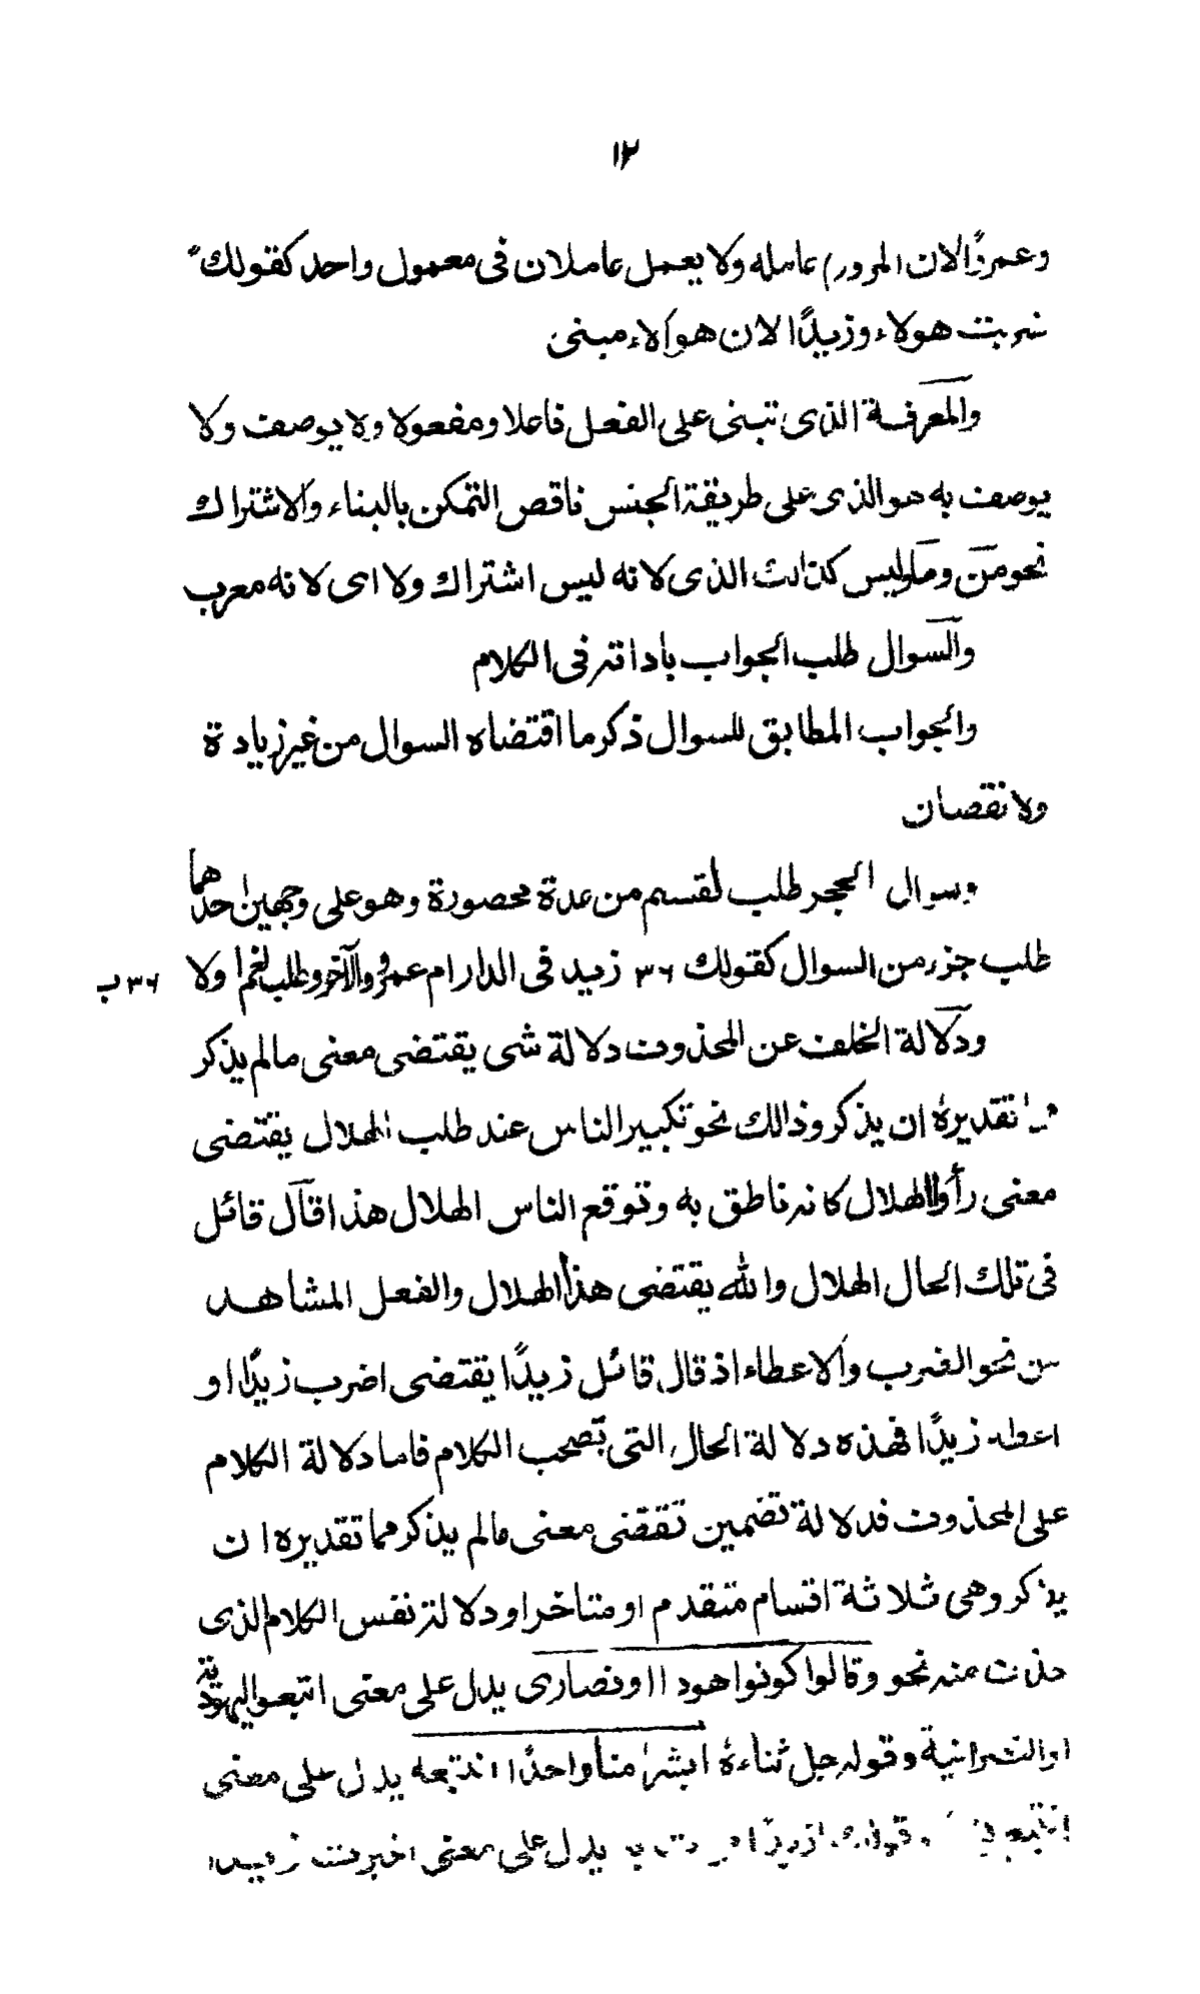 ١٢
وعمروًا لان المرور عامله ولا يعمل عاملان فى معمول واحد كقولك
ضربت هولاء وزيدًا لان هولاء مبنى
والمعرفة الذى تبنى على الفعل فاعلا ومفعولا ولا يوصف ولا
يوصف به هو الذى على طريقة الجنس ناقص التمكن بالبناء والاشتراك
نحو من وما وليس كذالك الذى لانه ليس اشتراك ولا اى لانه معرب
والسوال طلب الجواب باداته فى الكلام
والجواب المطابق للسوال ذكر ما اقتضاه السوال من غير زيادة
ولا نقصان
وسوال الحجر طلب لقسم من عدة محصورة وهو على وجهين احدهما
طلب جزء من السوال كقولك ٣٦ زيد فى الدار ام عمرو والآخر وطلب لنعم او لا ٣٦ ب
ودلالة الخلف عن المحذوف دلالة شى يقتضى معنى مالم يذكر
تقديره ان يذكر وذالك نحو تكبير الناس عند طلب الهلال يقتضى
معنى رأوا الهلال كانه ناطق به وتوقع الناس الهلال هذا قال قائل
فى تلك الحال الهلال والله يقتضى هذا الهلال والفعل المشاهد
من نحو الضرب والاعطاء اذ قال قائل زيدًا يقتضى اضرب زيدًا او
اعط زيدًا فهذه دلالة الحال التى تصحب الكلام فاما دلالة الكلام
على المحذوف فدلالة تضمين تقتضى معنى مالم يذكر مما تقديره ان
يذكر وهى ثلاثة اقسام متقدم او متاخر او دلالة نفس الكلام الذى
حذف منه نحو وقالوا كونوا هودا او نصارى يدل على معنى اتبعوا اليهودية
او النصرانية وقوله جل ثناءهُ ابشرا منا واحدًا نتبعه يدل على معنى
يدل على معنى اخبرت زيدا